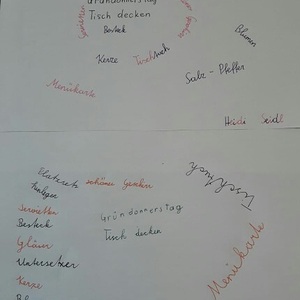 Gründonnerstag
Tisch decken
Servietten
Besteck
Blumen
Kerze
Tischtuch
Salz - Pfeffer
Menükarte
Heidi Seidl
Platzsets schönes Geschirr
Tischtuch
Servietten
Gründonnerstag
Besteck
Tisch decken
Gläser
Untersetzer
Menükarte
Kerze